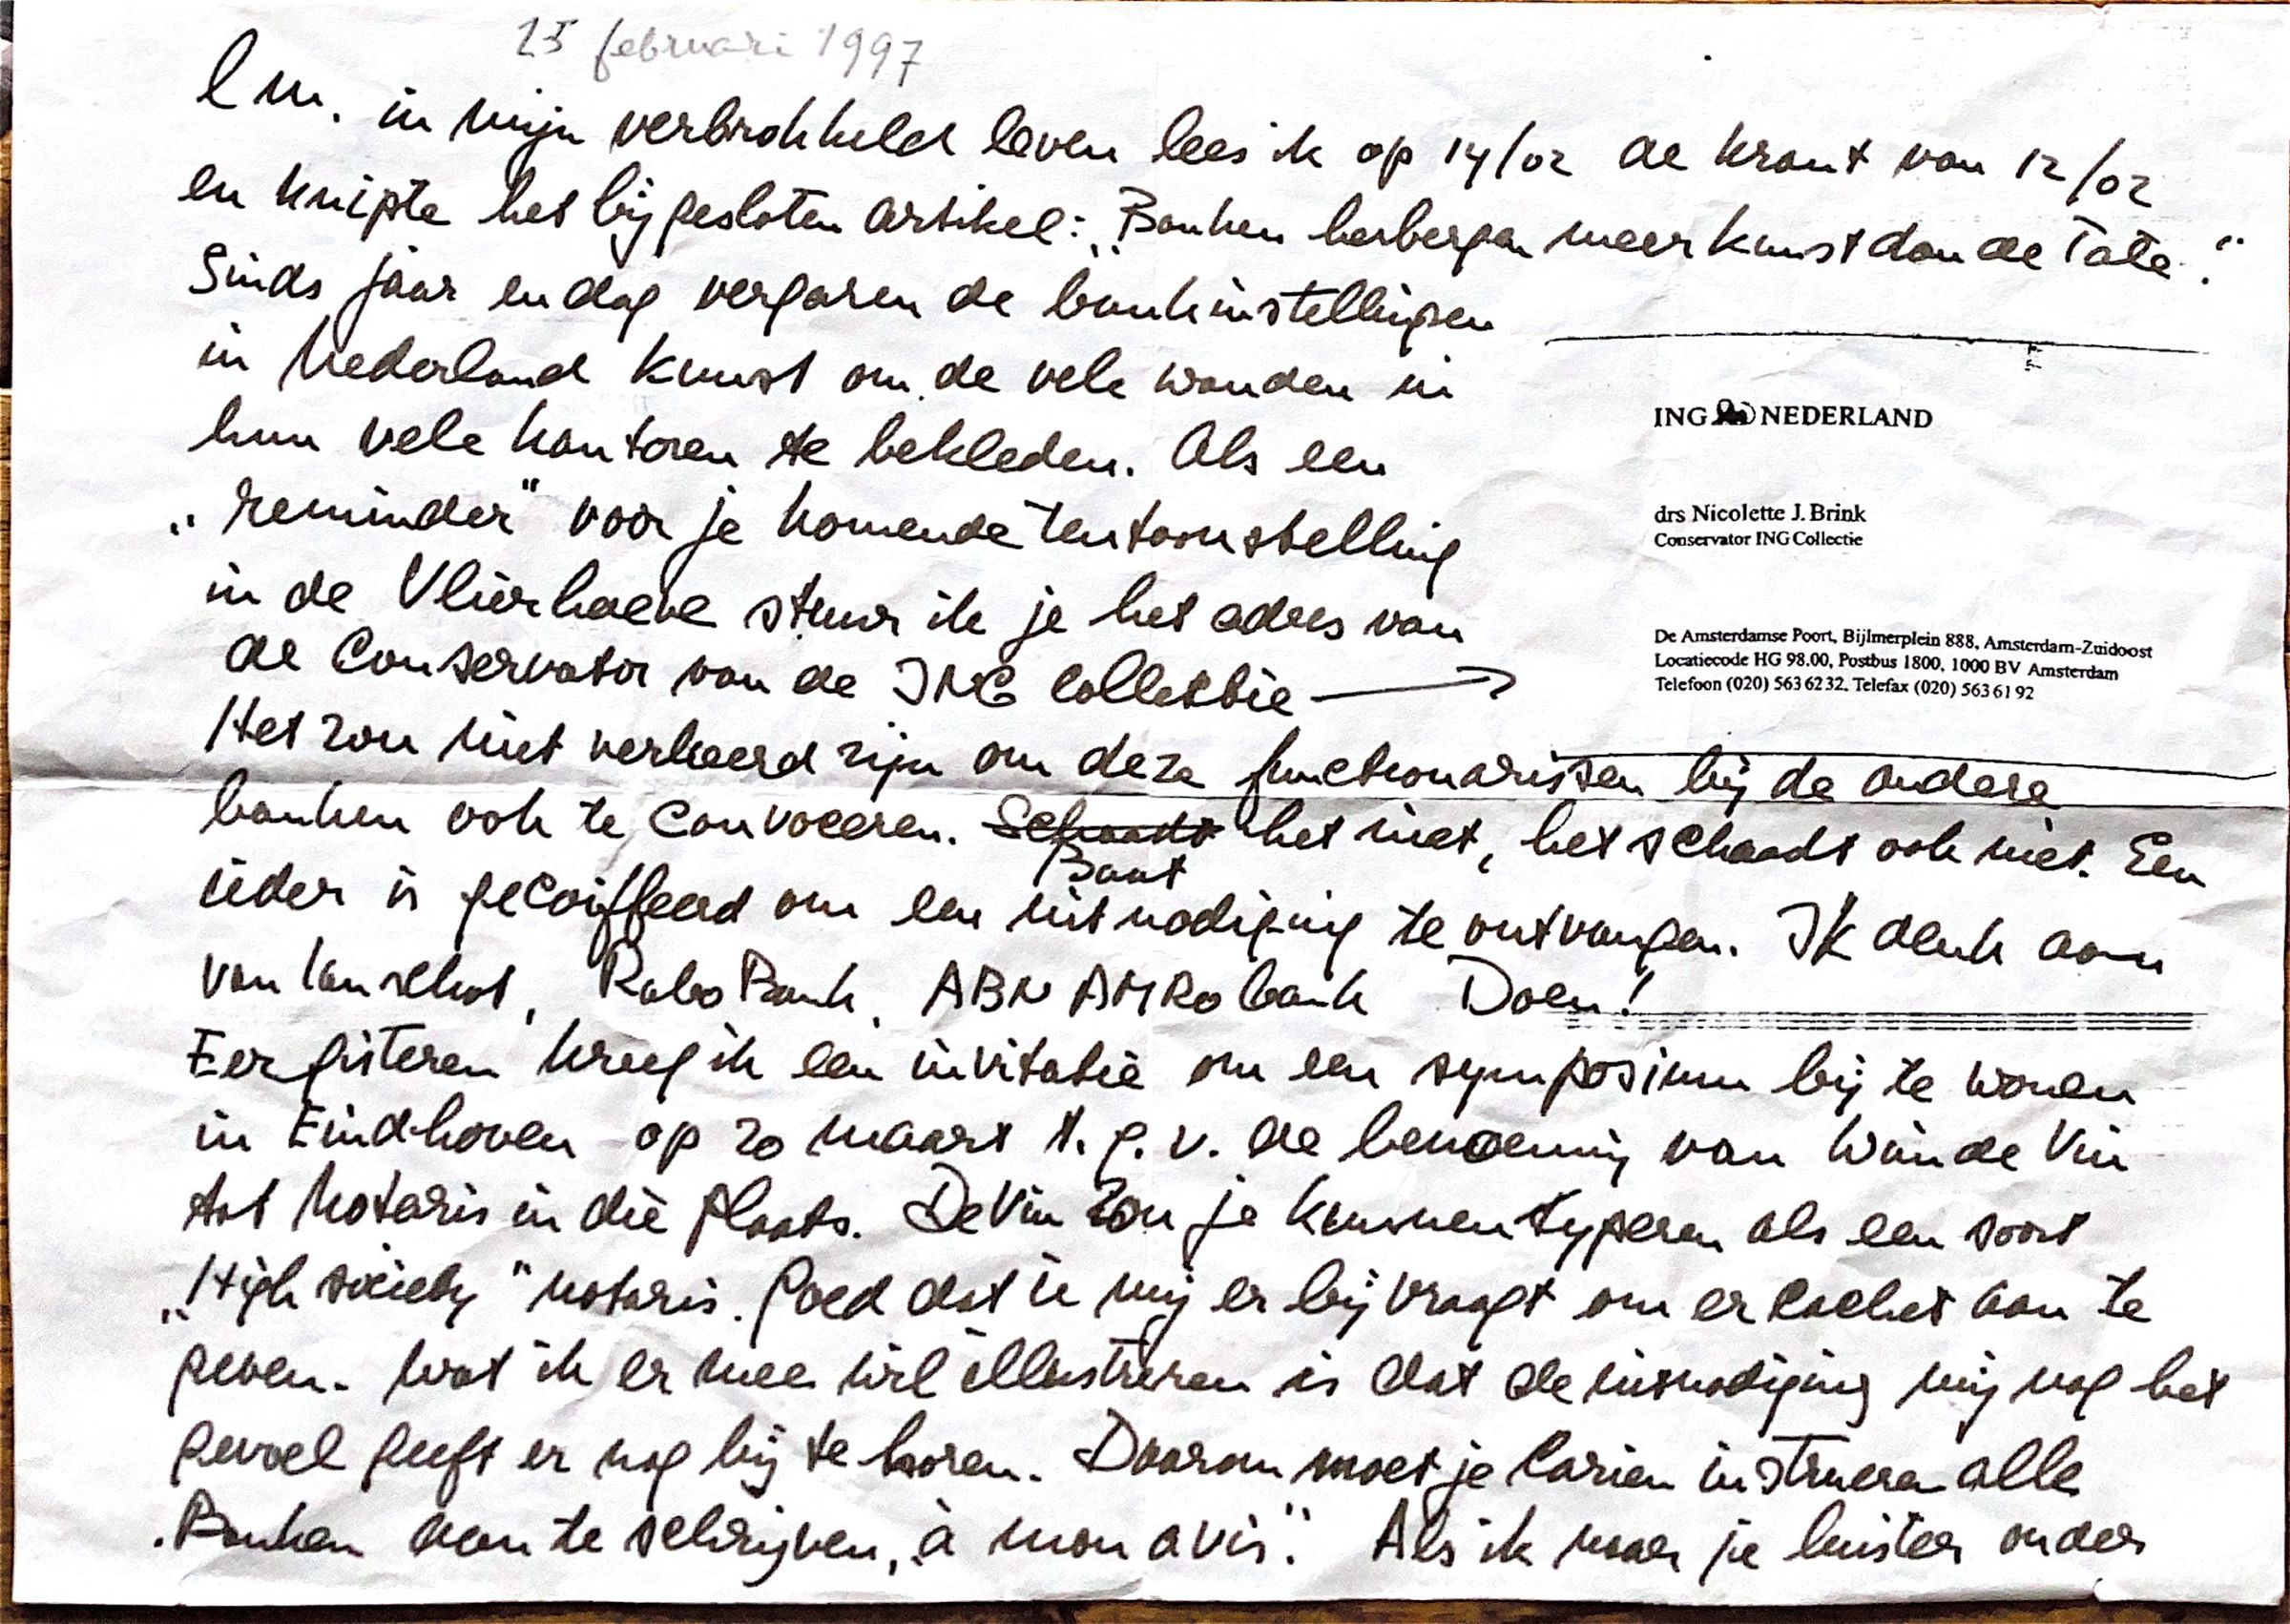 25 februari 1997
l m. in mijn verbrokkeld leven lees ik op 14/02 de krant van 12/02
en knipte het bijgesloten artikel: „Banken herbergen meer kunst dan de Tate".
Sinds jaar en dag vergaren de bankinstellingen
in Nederland kunst om de vele wanden in
hun vele kantoren te bekleden. Als een
„reminder" voor je komende tentoonstelling
in de Vlierhoeve stuur ik je het adres van
de Conservator van de ING Collectie →
ING NEDERLAND
drs Nicolette J. Brink
Conservator ING Collectie
De Amsterdamse Poort, Bijlmerplein 888, Amsterdam-Zuidoost
Locatiecode HG 98.00, Postbus 1800, 1000 BV Amsterdam
Telefoon (020) 563 62 32. Telefax (020) 563 61 92
Het zou niet verkeerd zijn om deze functionarissen bij de andere
banken ook te convoceren. Schaadt het niet, het schaadt ook niet. Een
Baat
ieder is gecoiffeerd om een uitnodiging te ontvangen. Ik denk aan
van Lanschot, RaboBank, ABN AMRO bank Doen!
Eergisteren kreeg ik een invitatie om een symposium bij te wonen
in Eindhoven op 20 maart t.g.v. de benoeming van Wim de Vin
tot Notaris in die plaats. De Vin zou je kunnen typeren als een soort
„High society" notaris. Goed dat ie mij er bij vraagt om er cachet aan te
geven. Wat ik er mee wil illustreren is dat de uitnodiging mij nog het
gevoel geeft er nog bij te horen. Daarom moet je Carien instrueren alle
Banken aan te schrijven, „à mon avis". Als ik naar je luister onder